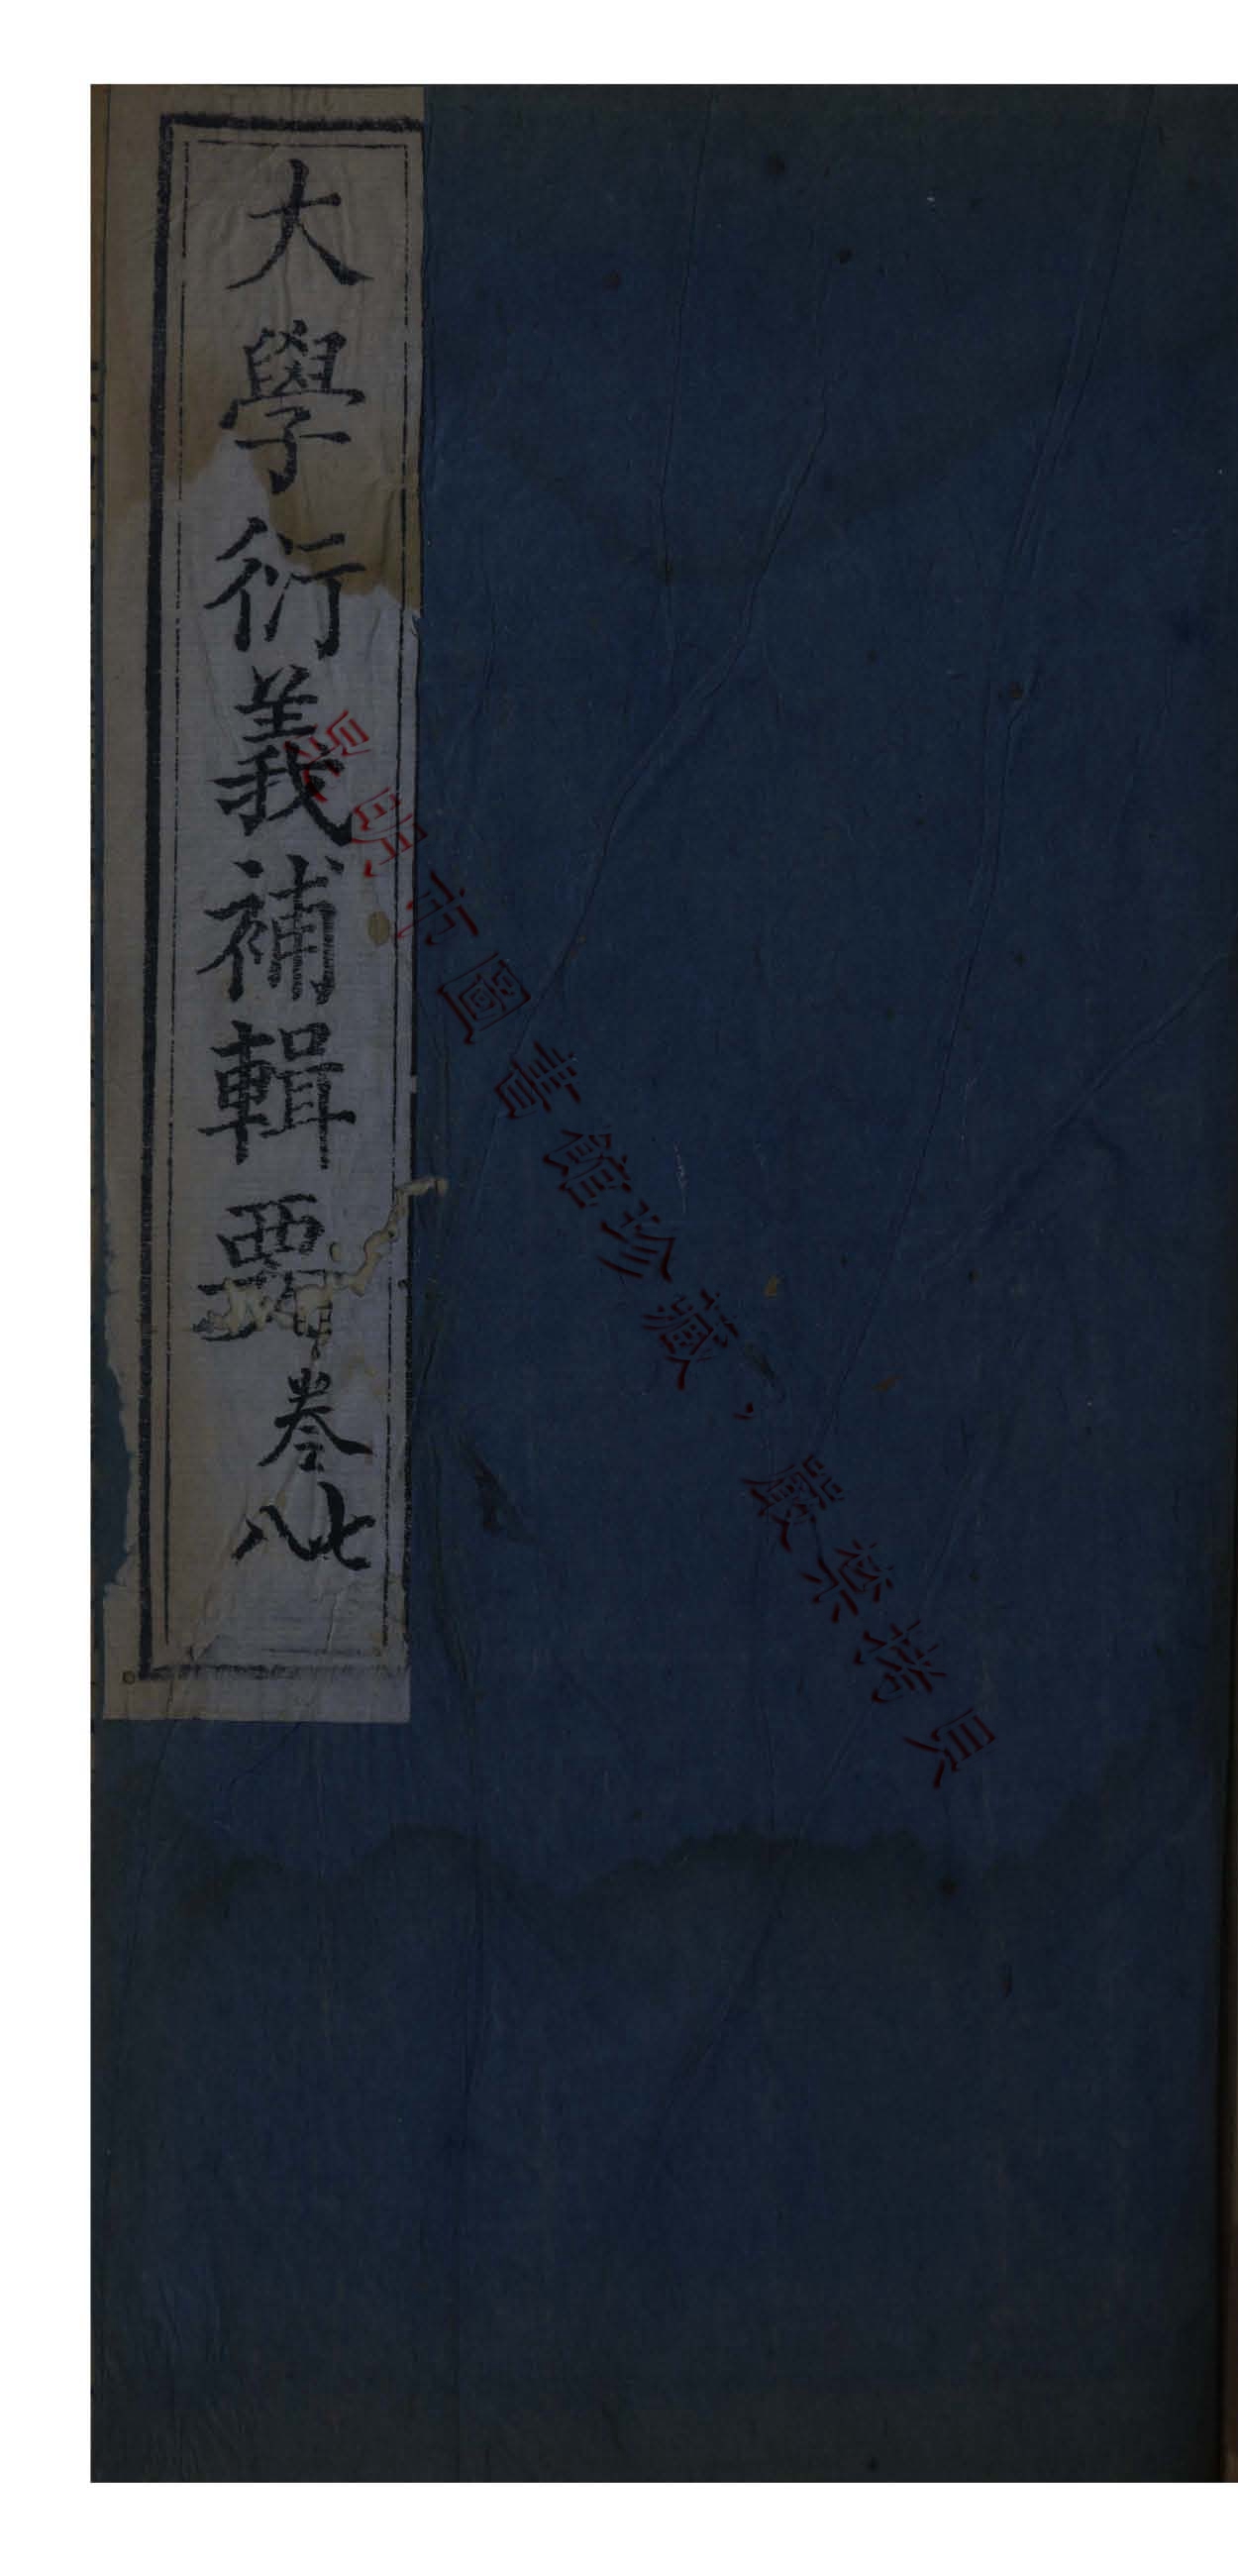 大學衍義補輯要
卷七八
昆明市圖書館珍藏，嚴禁拷貝